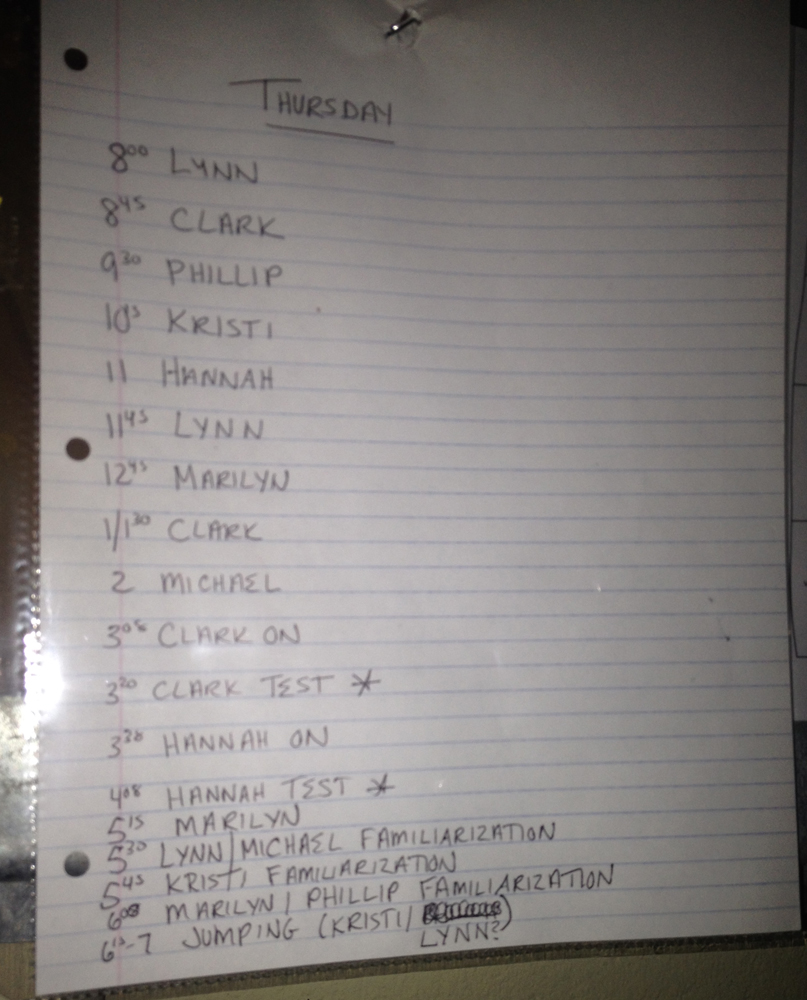 THURSDAY
8⁰⁰ LYNN
8⁴⁵ CLARK
9³⁰ PHILLIP
KRISTI
11 HANNAH
11⁴⁵ LYNN
12⁴⁵ MARILYN
1/1³⁰ CLARK
2 MICHAEL
CLARK ON
3²⁰ CLARK TEST *
HANNAH ON
4⁰⁸ HANNAH TEST *
5¹⁵ MARILYN
5³⁰ LYNN/MICHAEL FAMILIARIZATION
5⁴⁵ KRISTI FAMILIARIZATION
MARILYN/PHILLIP FAMILIARIZATION
6¹⁵-7 JUMPING (KRISTI/ )
LYNN?